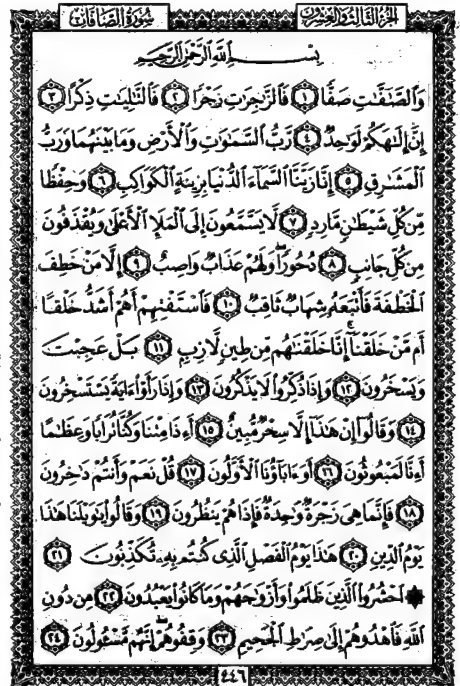 الجزء الثالث والعشرون
سورة الصافات
بِسْمِ اللَّهِ الرَّحْمَٰنِ الرَّحِيمِ
وَالصَّٰٓفَّٰتِ صَفًّا ١ فَالزَّٰجِرَٰتِ زَجْرًا ٢ فَالتَّٰلِيَٰتِ ذِكْرًا ٣
إِنَّ إِلَٰهَكُمْ لَوَٰحِدٌ ٤ رَّبُّ السَّمَٰوَٰتِ وَالْأَرْضِ وَمَا بَيْنَهُمَا وَرَبُّ
الْمَشَٰرِقِ ٥ إِنَّا زَيَّنَّا السَّمَآءَ الدُّنْيَا بِزِينَةٍ الْكَوَاكِبِ ٦ وَحِفْظًا
مِّن كُلِّ شَيْطَٰنٍ مَّارِدٍ ٧ لَّا يَسَّمَّعُونَ إِلَى الْمَلَإِ الْأَعْلَىٰ وَيُقْذَفُونَ
مِن كُلِّ جَانِبٍ ٨ دُحُورًا وَلَهُمْ عَذَابٌ وَاصِبٌ ٩ إِلَّا مَنْ خَطِفَ
الْخَطْفَةَ فَأَتْبَعَهُ شِهَابٌ ثَاقِبٌ ١٠ فَاسْتَفْتِهِمْ أَهُمْ أَشَدُّ خَلْقًا
أَم مَّنْ خَلَقْنَا إِنَّا خَلَقْنَٰهُم مِّن طِينٍ لَّازِبٍ ١١ بَلْ عَجِبْتَ
وَيَسْخَرُونَ ١٢ وَإِذَا ذُكِّرُوا لَا يَذْكُرُونَ ١٣ وَإِذَا رَأَوْا ءَايَةً يَسْتَسْخِرُونَ
١٤ وَقَالُوٓا إِنْ هَٰذَآ إِلَّا سِحْرٌ مُّبِينٌ ١٥ أَءِذَا مِتْنَا وَكُنَّا تُرَابًا وَعِظَٰمًا
أَءِنَّا لَمَبْعُوثُونَ ١٦ أَوَءَابَآؤُنَا الْأَوَّلُونَ ١٧ قُلْ نَعَمْ وَأَنتُمْ دَٰخِرُونَ
١٨ فَإِنَّمَا هِيَ زَجْرَةٌ وَٰحِدَةٌ فَإِذَا هُمْ يَنظُرُونَ ١٩ وَقَالُوا يَٰوَيْلَنَا هَٰذَا
يَوْمُ الدِّينِ ٢٠ هَٰذَا يَوْمُ الْفَصْلِ الَّذِي كُنتُم بِهِ تُكَذِّبُونَ ٢١
۞ احْشُرُوا الَّذِينَ ظَلَمُوا وَأَزْوَٰجَهُمْ وَمَا كَانُوا يَعْبُدُونَ ٢٢ مِن دُونِ
اللَّهِ فَاهْدُوهُمْ إِلَىٰ صِرَٰطِ الْجَحِيمِ ٢٣ وَقِفُوهُمْ إِنَّهُم مَّسْـُٔولُونَ ٢٤
٤٤٦